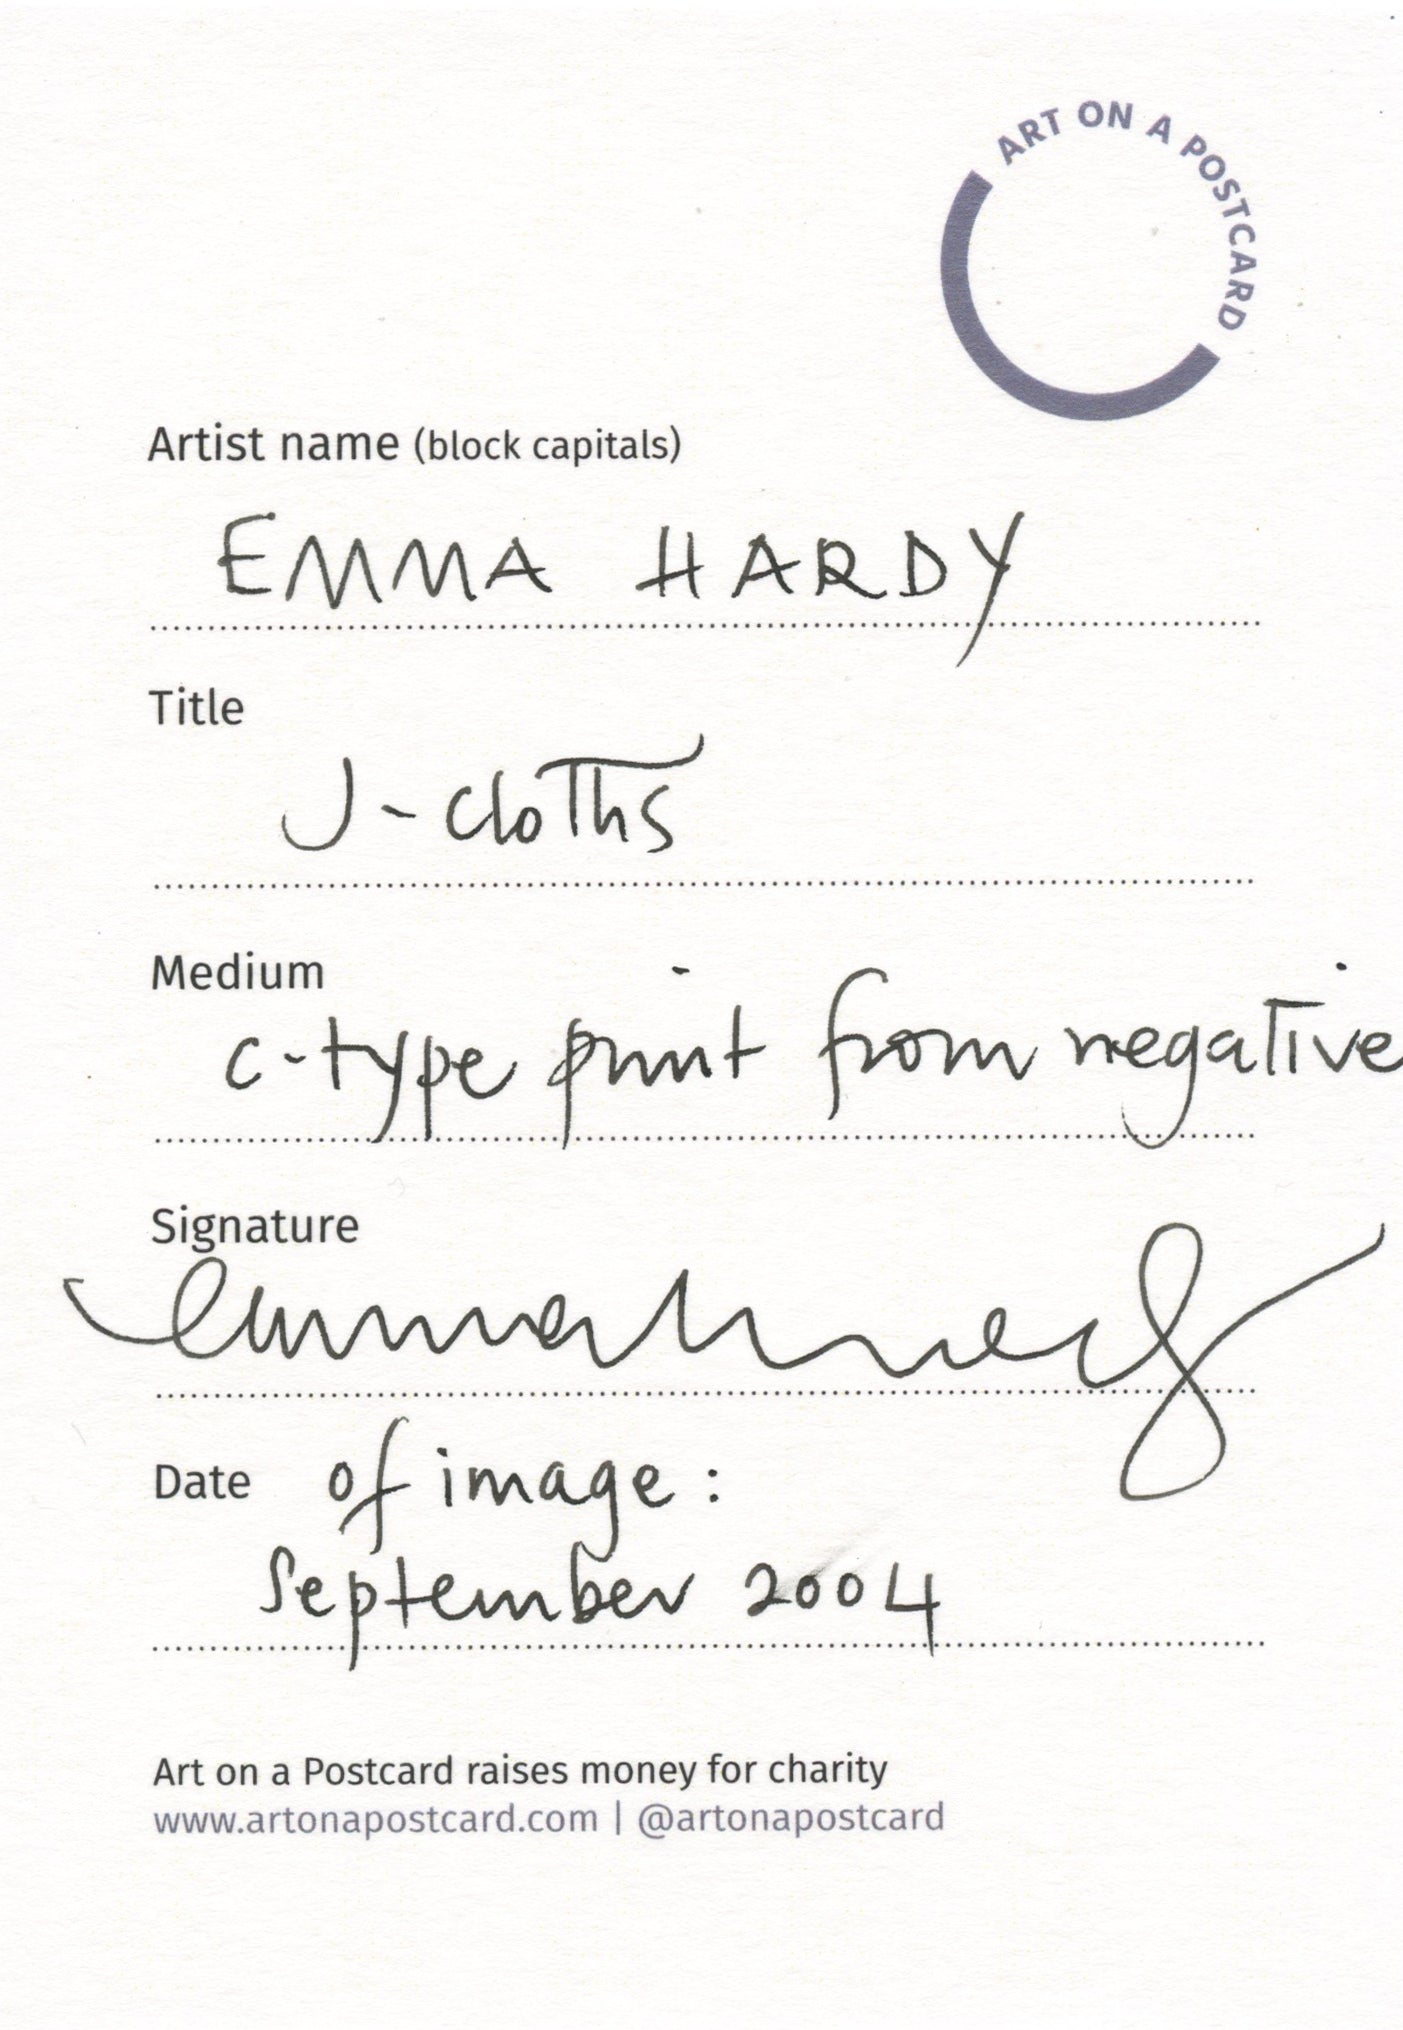 ART ON A POSTCARD
Artist name (block capitals)
EMMA HARDY
Title
J-cloths
Medium
c-type print from negative
Signature
Date of image:
September 2004
Art on a Postcard raises money for charity
www.artonapostcard.com | @artonapostcard